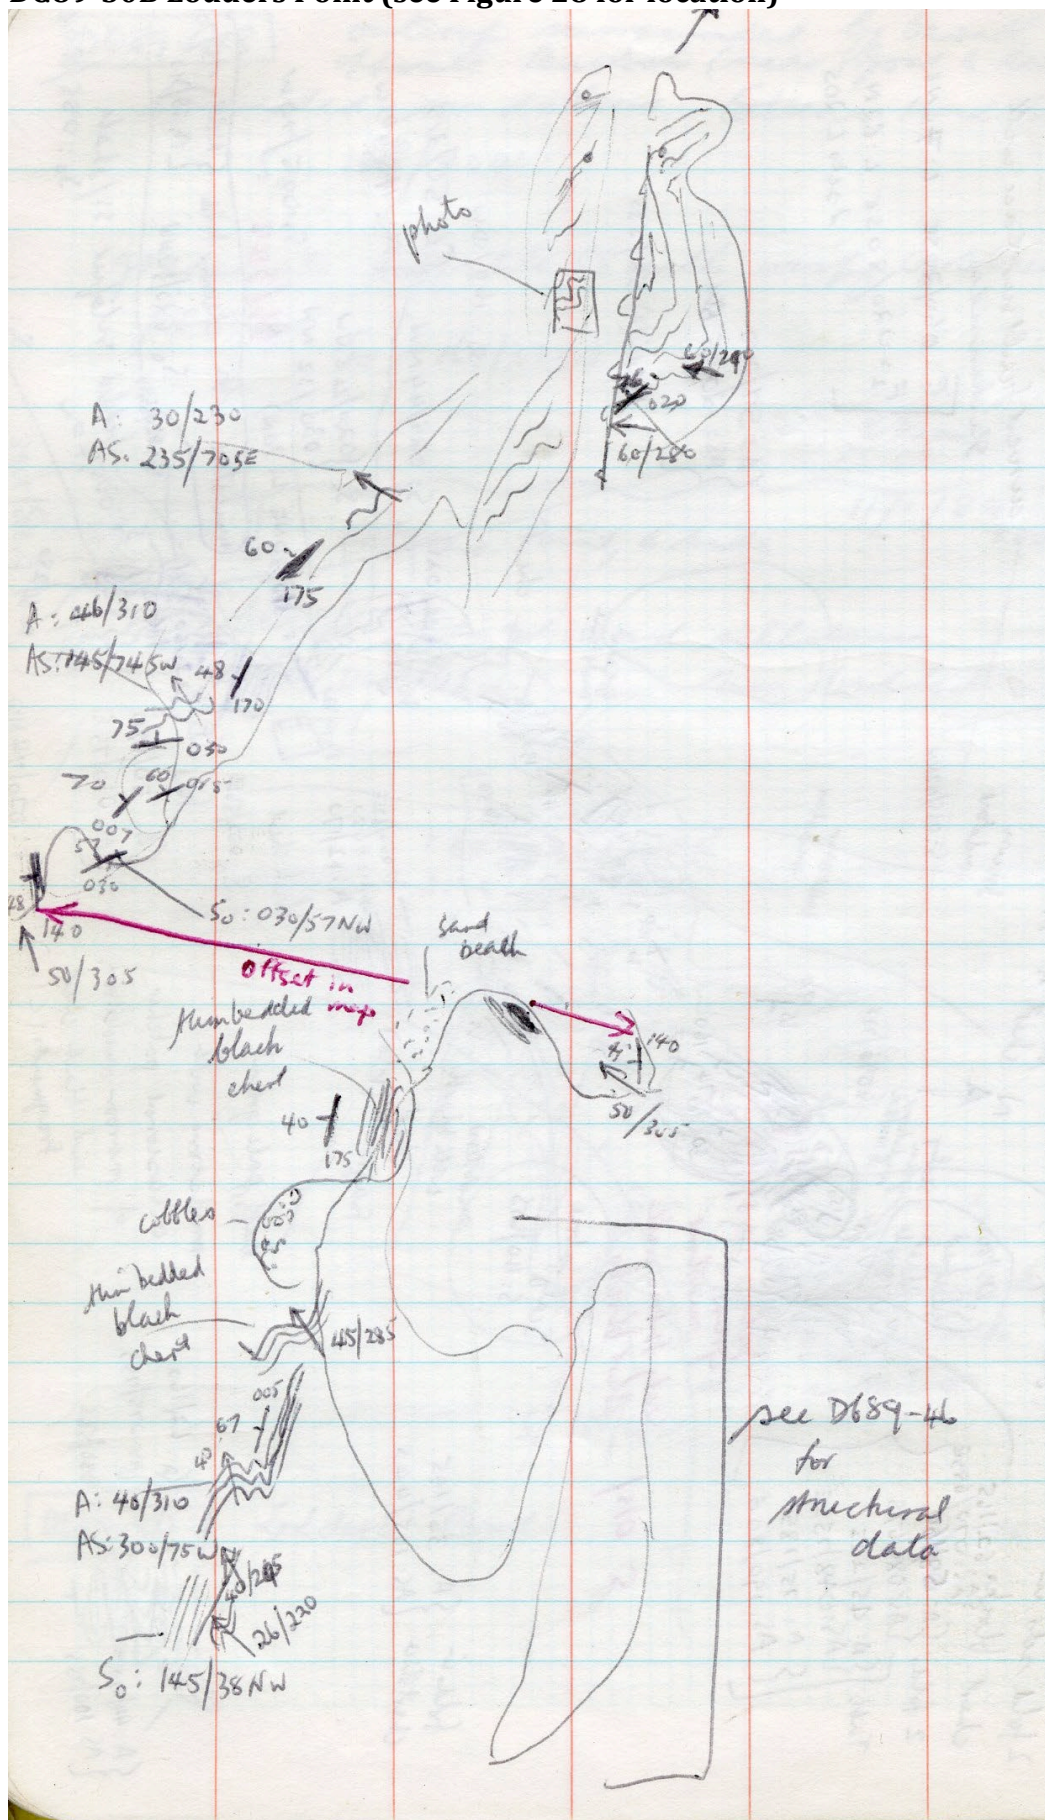 DG89-50B Loaders Point (see Figure 28 for location)
photo
60/290
020
60/280
A: 30/230
AS: 235/70SE
60
175
A: 46/310
AS: 145/74SW
48
170
75
030
70
60
015
007
57
030
48
140
50/305
S₀: 030/57NW
sand
beach
Offset in
map
thinbedded
black
chert
140
50/305
40
175
cobbles
thin bedded
black
chert
45/285
005
67
40
A: 40/310
AS: 300/75W
26/220
S₀: 145/38NW
see DG89-46
for
structural
data